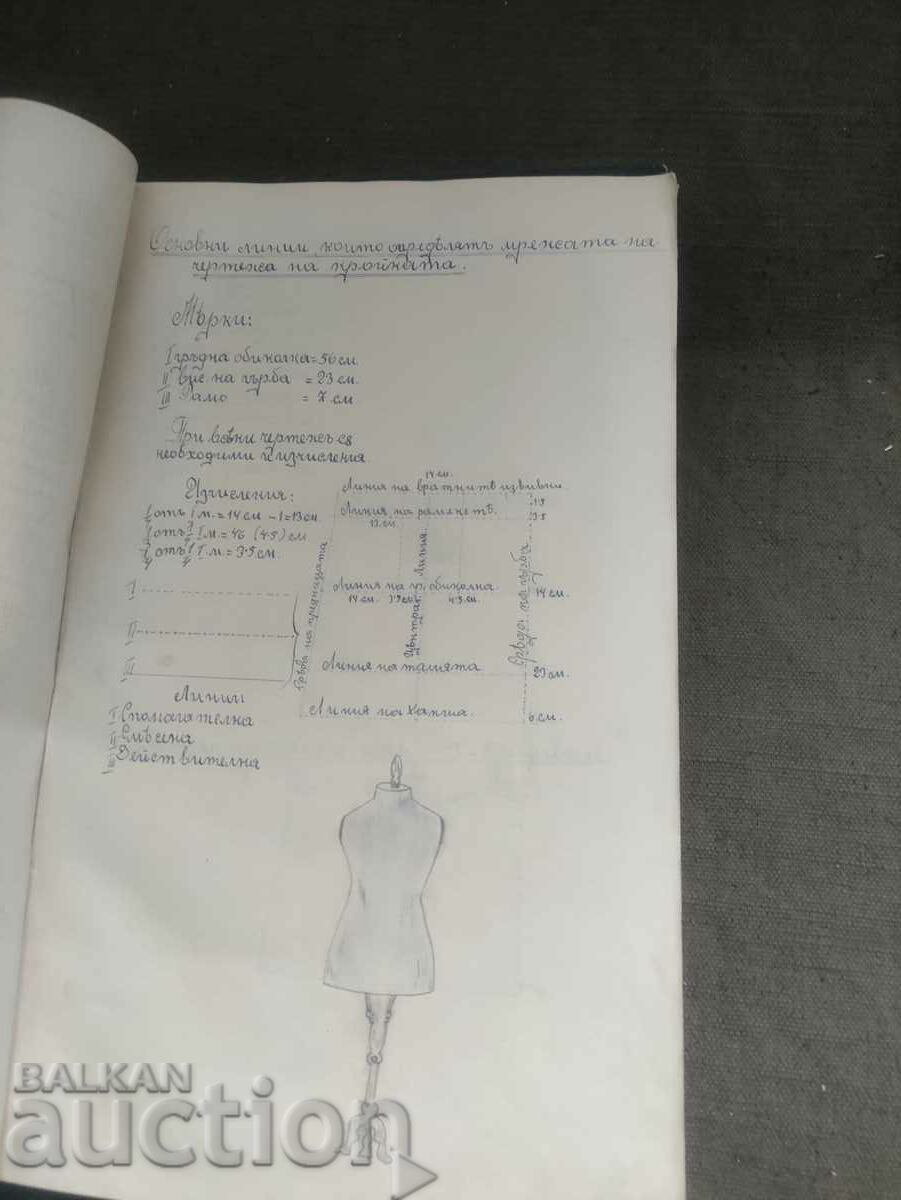 Основни линии, които опредѣлятъ мрежата на
чертежа на кройката.
Мѣрки:
I гръдна обиколка = 56 см.
II вис. на гърба = 23 см.
III Рамо = 7 см
При всѣки чертежъ са
необходими изчисления
Изчисления:
отъ I м. = 14 см - 1 = 13 см.
отъ I м. = 46 (4·5) см
отъ I м. = 3·5 см.
I
II
III
Линии
I Спомагателна
II Смѣсена
III Действителна
14 см.
Линия на вратнитѣ извивки
1·5
Линия на раменетѣ
3·5
13 см.
Линия на гр. обиколка
14 см. 3·5 см. 4·5 см.
14 см.
Линия на талията
23 см.
Линия на ханша
6 см.
Ръбъ на предницата
Централ. Линия
Срѣда на гърба
BALKAN
auction